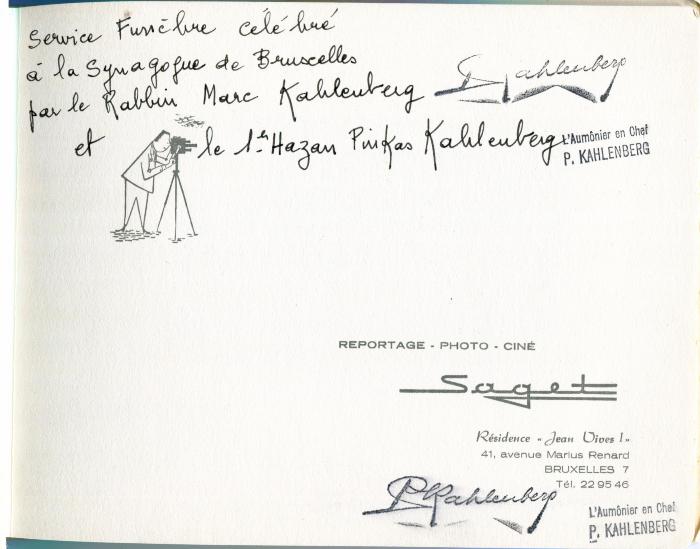 Service Funèbre célébré
à la Synagogue de Bruxcelles
par le Rabbin Marc Kahlenberg
Kahlenberg
et le 1er Hazan Pinkas Kahlenberg
L'Aumônier en Chef
P. KAHLENBERG
REPORTAGE - PHOTO - CINÉ
Saget
Résidence "Jean Vives 1"
41, avenue Marius Renard
BRUXELLES 7
Tél. 22 95 46
PKahlenberg
L'Aumônier en Chef
P. KAHLENBERG